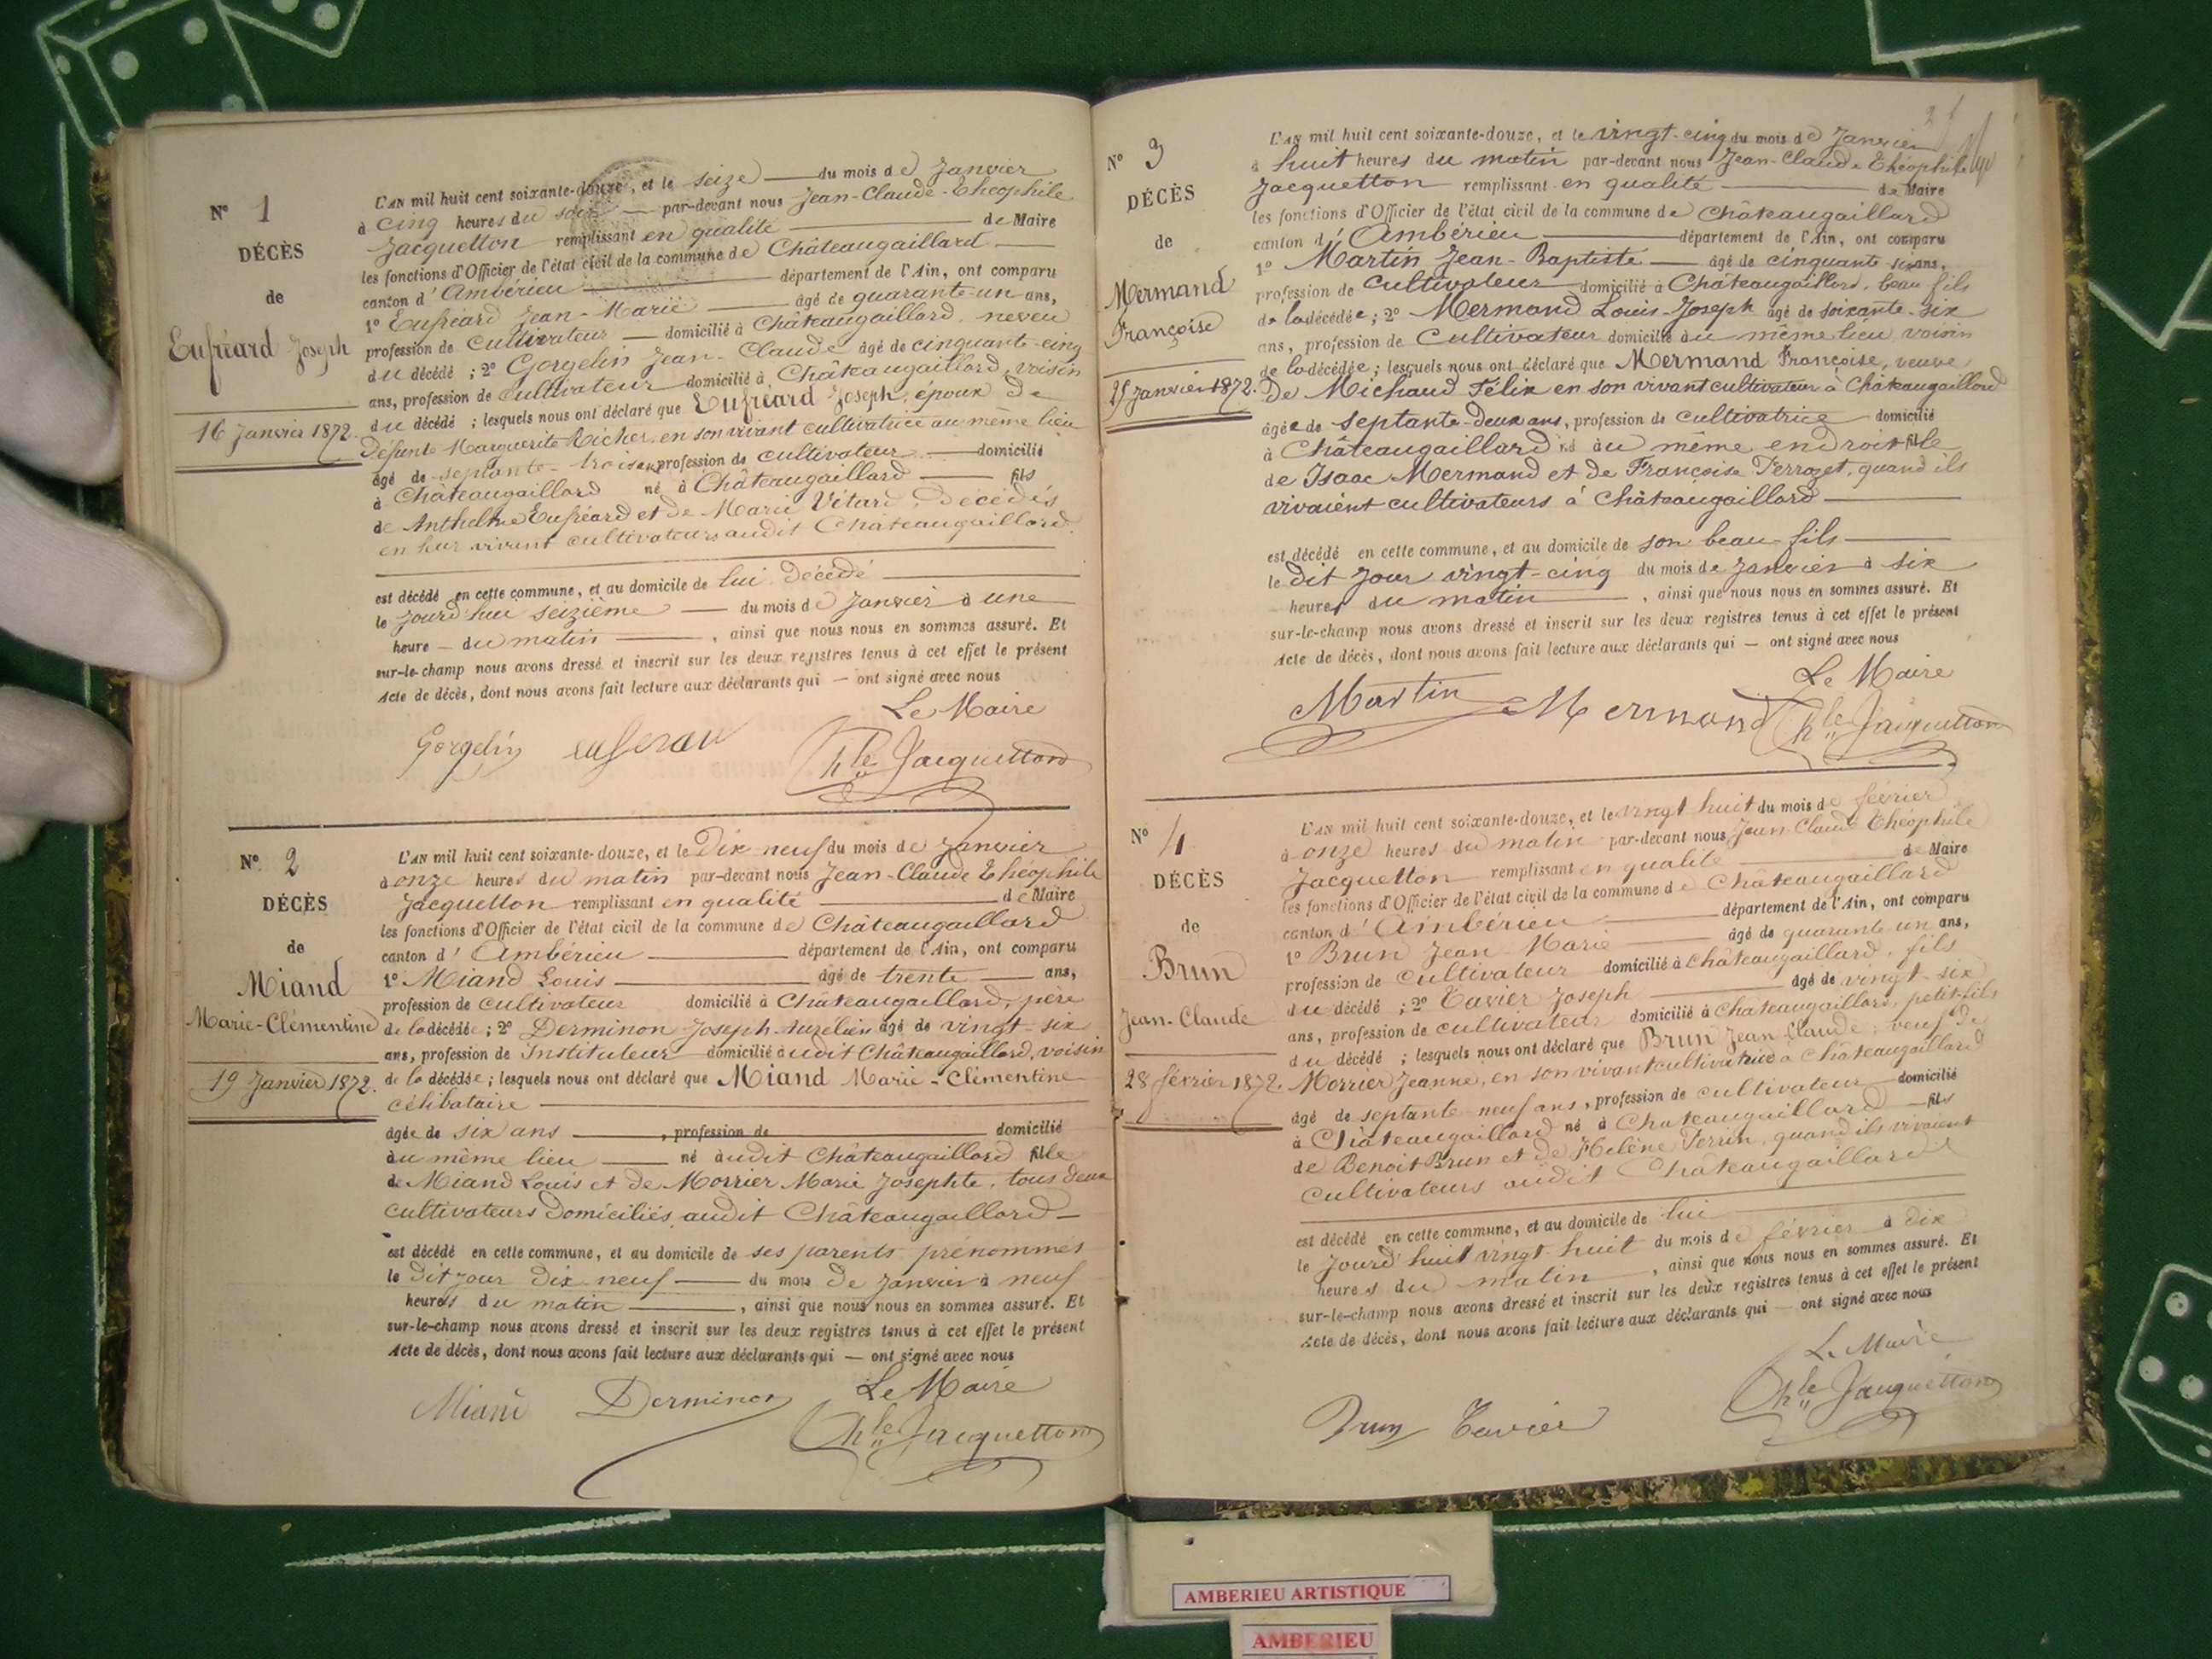 N° 1
DÉCÈS
de
Eufréard Joseph
16 Janvier 1872.
L'AN mil huit cent soixante-douze, et le seize du mois de Janvier
à cinq heures du soir par-devant nous Jean-Claude-Théophile
Jacquetton remplissant en qualité de Maire
les fonctions d'Officier de l'état civil de la commune de Châteaugaillard
canton d'Ambérieu département de l'Ain, ont comparu
1° Eufréard Jean-Marie âgé de quarante-un ans,
profession de cultivateur domicilié à Châteaugaillard, neveu
du décédé ; 2° Gorgelin Jean-Claude âgé de cinquante-cinq
ans, profession de cultivateur domicilié à Châteaugaillard, voisin
du décédé ; lesquels nous ont déclaré que Eufréard Joseph, époux de
défunte Marguerite Richer, en son vivant cultivatrice au même lieu
âgé de septante-trois ans, profession de cultivateur domicilié
à Châteaugaillard né à Châteaugaillard fils
de Anthelme Eufréard et de Marie Vétard, décédés
en leur vivant cultivateurs audit Châteaugaillard.
est décédé en cette commune, et au domicile de lui décédé
le jourd'hui seizième du mois de Janvier à une
heure du matin , ainsi que nous nous en sommes assuré. Et
sur-le-champ nous avons dressé et inscrit sur les deux registres tenus à cet effet le présent
Acte de décès, dont nous avons fait lecture aux déclarants qui — ont signé avec nous
Le Maire
Gorgelin Jacquetton
N° 2
DÉCÈS
de
Miand
Marie-Clémentine
19 Janvier 1872.
L'AN mil huit cent soixante-douze, et le Dix neuf du mois de Janvier
à onze heures du matin par-devant nous Jean-Claude Théophile
Jacquetton remplissant en qualité de Maire
les fonctions d'Officier de l'état civil de la commune de Châteaugaillard
canton d'Ambérieu département de l'Ain, ont comparu
1° Miand Louis âgé de trente ans,
profession de cultivateur domicilié à Châteaugaillard, père
de la décédée ; 2° Derminon Joseph-Aurélien âgé de vingt-six
ans, profession de Instituteur domicilié audit Châteaugaillard, voisin
de la décédée ; lesquels nous ont déclaré que Miand Marie-Clémentine
célibataire
âgée de six ans , profession de domicilié
au même lieu né audit Châteaugaillard fille
de Miand Louis et de Morrier Marie Josephte, tous deux
cultivateurs domiciliés audit Châteaugaillard
est décédé en cette commune, et au domicile de ses parents prénommés
le dit jour dix-neuf du mois de Janvier à neuf
heures du matin , ainsi que nous nous en sommes assuré. Et
sur-le-champ nous avons dressé et inscrit sur les deux registres tenus à cet effet le présent
Acte de décès, dont nous avons fait lecture aux déclarants qui — ont signé avec nous
Le Maire
Miand Derminon Jacquetton
N° 3
DÉCÈS
de
Mermand
Françoise
25 Janvier 1872.
L'AN mil huit cent soixante-douze, et le vingt-cinq du mois de Janvier
à huit heures du matin par-devant nous Jean-Claude Théophile
Jacquetton remplissant en qualité de Maire
les fonctions d'Officier de l'état civil de la commune de Châteaugaillard
canton d'Ambérieu département de l'Ain, ont comparu
1° Martin Jean-Baptiste âgé de cinquante-six ans,
profession de cultivateur domicilié à Châteaugaillard, beau fils
de la décédée ; 2° Mermand Louis-Joseph âgé de soixante-six
ans, profession de Cultivateur domicilié au même lieu, voisin
de la décédée ; lesquels nous ont déclaré que Mermand Françoise, veuve
de Michaud Félix en son vivant cultivateur à Châteaugaillard
âgée de septante-deux ans, profession de cultivatrice domicilié
à Châteaugaillard né au même endroit fille
de Isaac Mermand et de Françoise Perrozet, quand ils
vivaient cultivateurs à Châteaugaillard
est décédé en cette commune, et au domicile de son beau-fils
le dit jour vingt-cinq du mois de Janvier à six
heures du matin , ainsi que nous nous en sommes assuré. Et
sur-le-champ nous avons dressé et inscrit sur les deux registres tenus à cet effet le présent
Acte de décès, dont nous avons fait lecture aux déclarants qui — ont signé avec nous
Le Maire
Martin Mermand Jacquetton
N° 4
DÉCÈS
de
Brun
Jean-Claude
28 février 1872.
L'AN mil huit cent soixante-douze, et le vingt huit du mois de février
à onze heures du matin par-devant nous Jean-Claude Théophile
Jacquetton remplissant en qualité de Maire
les fonctions d'Officier de l'état civil de la commune de Châteaugaillard
canton d'Ambérieu département de l'Ain, ont comparu
1° Brun Jean Marie âgé de quarante un ans,
profession de cultivateur domicilié à Châteaugaillard, fils
du décédé ; 2° Tavier Joseph âgé de vingt-six
ans, profession de cultivateur domicilié à Châteaugaillard, petit-fils
du décédé ; lesquels nous ont déclaré que Brun Jean Claude, veuf de
Morrier Jeanne, en son vivant cultivatrice à Châteaugaillard
âgé de septante neuf ans, profession de cultivateur domicilié
à Châteaugaillard né à Châteaugaillard fils
de Benoit Brun et de Helène Perrin, quand ils vivaient
cultivateurs audit Châteaugaillard
est décédé en cette commune, et au domicile de lui
le jourd'huit vingt-huit du mois de février à dix
heures du matin , ainsi que nous nous en sommes assuré. Et
sur-le-champ nous avons dressé et inscrit sur les deux registres tenus à cet effet le présent
Acte de décès, dont nous avons fait lecture aux déclarants qui — ont signé avec nous
Le Maire
Brun Tavier Jacquetton
AMBERIEU ARTISTIQUE
AMBERIEU